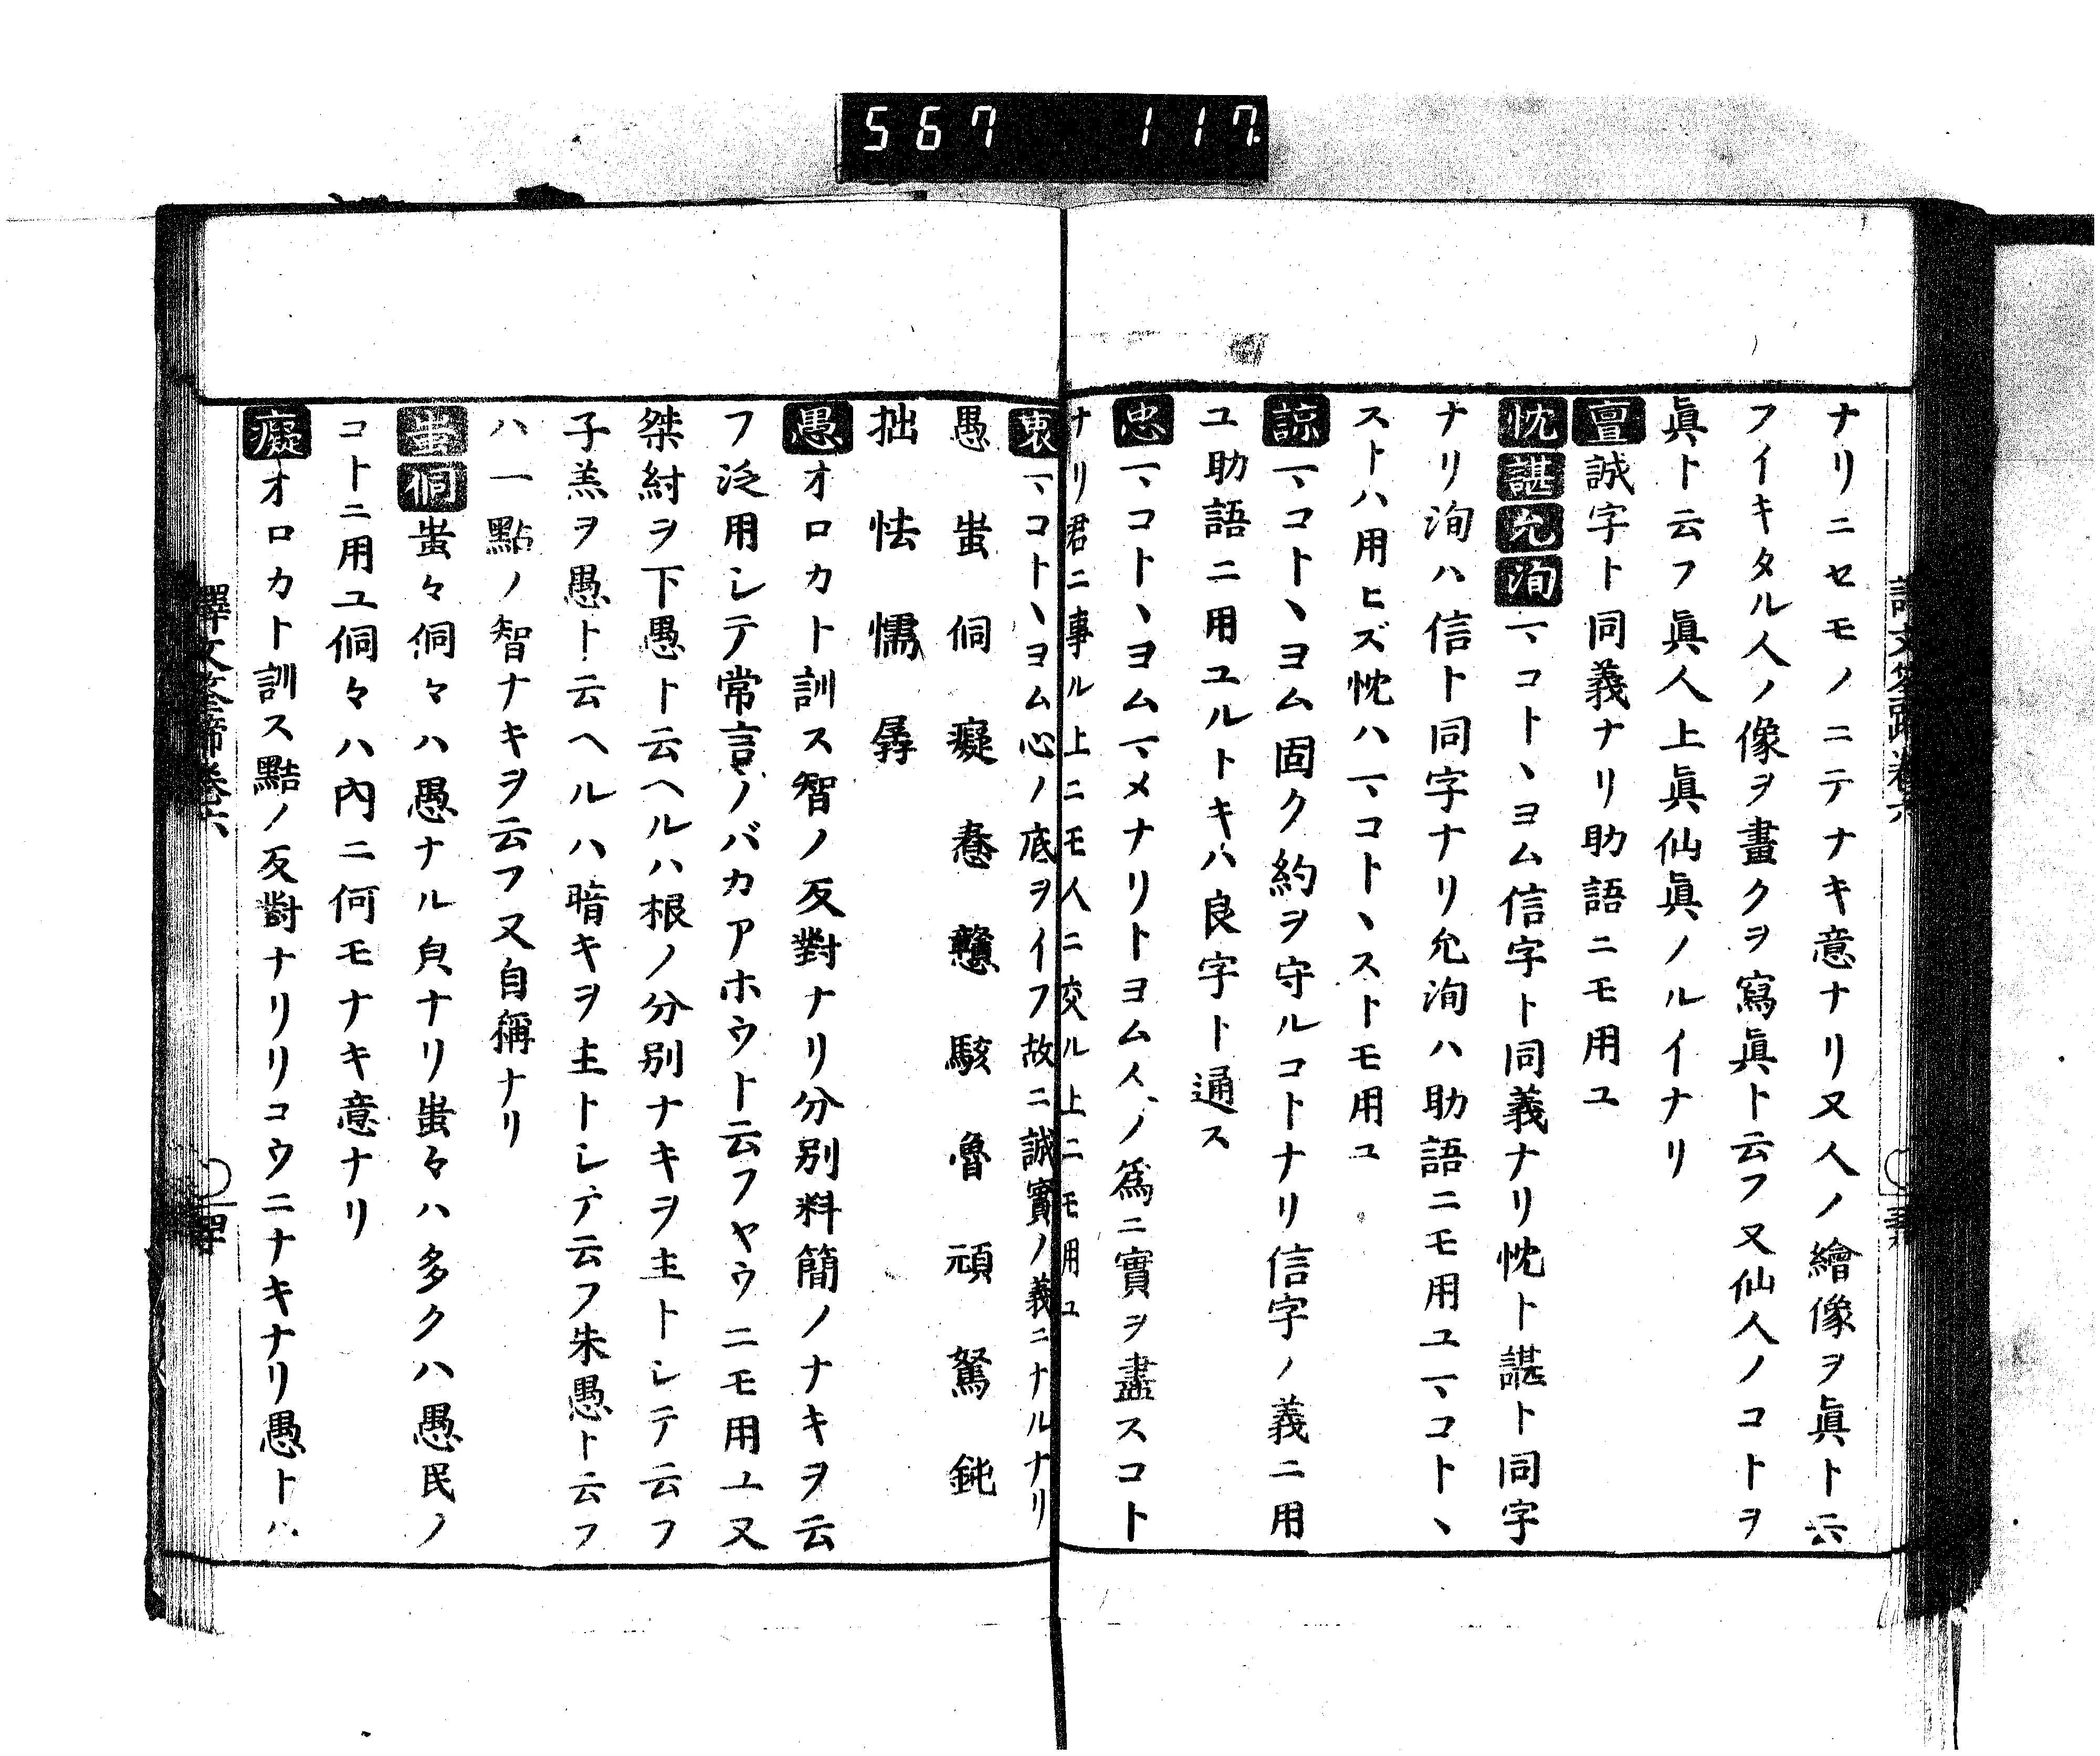 567 117
ナリニセモノニテナキ意ナリ又人ノ繪像ヲ眞ト云
フイキタル人ノ像ヲ畫クヲ寫眞ト云フ又仙人ノコトヲ
眞ト云フ眞人上眞仙眞ノルイナリ
亶誠字ト同義ナリ助語ニモ用ユ
忱諶允洵マコトヽヨム信字ト同義ナリ忱ト諶ト同字
ナリ洵ハ信ト同字ナリ允洵ハ助語ニモ用ユマコトヽ
ストハ用ヒズ忱ハマコトヽストモ用ユ
諒マコトヽヨム固ク約ヲ守ルコトナリ信字ノ義ニ用
ユ助語ニ用ユルトキハ良字ト通ス
忠マコトヽヨムマメナリトヨム人ノ爲ニ實ヲ盡スコト
ナリ君ニ事ル上ニモ人ニ交ル上ニモ用ユ
衷マコトヽヨム心ノ底ヲイフ故ニ誠實ノ義ニナルナリ
愚蚩侗癡惷戇騃魯頑駑鈍
拙怯懦孱
愚オロカト訓ス智ノ反對ナリ分別料簡ノナキヲ云
フ泛用シテ常言ノバカアホウト云フヤウニモ用ユ又
桀紂ヲ下愚ト云ヘルハ根ノ分別ナキヲ主トシテ云フ
子羔ヲ愚ト云ヘルハ暗キヲ主トシテ云フ朱愚ト云フ
ハ一點ノ智ナキヲ云フ又自稱ナリ
蚩侗蚩々侗々ハ愚ナル皃ナリ蚩々ハ多クハ愚民ノ
コトニ用ユ侗々ハ內ニ何モナキ意ナリ
癡オロカト訓ス黠ノ反對ナリリコウニナキナリ愚トハ
譯文筌蹄卷六